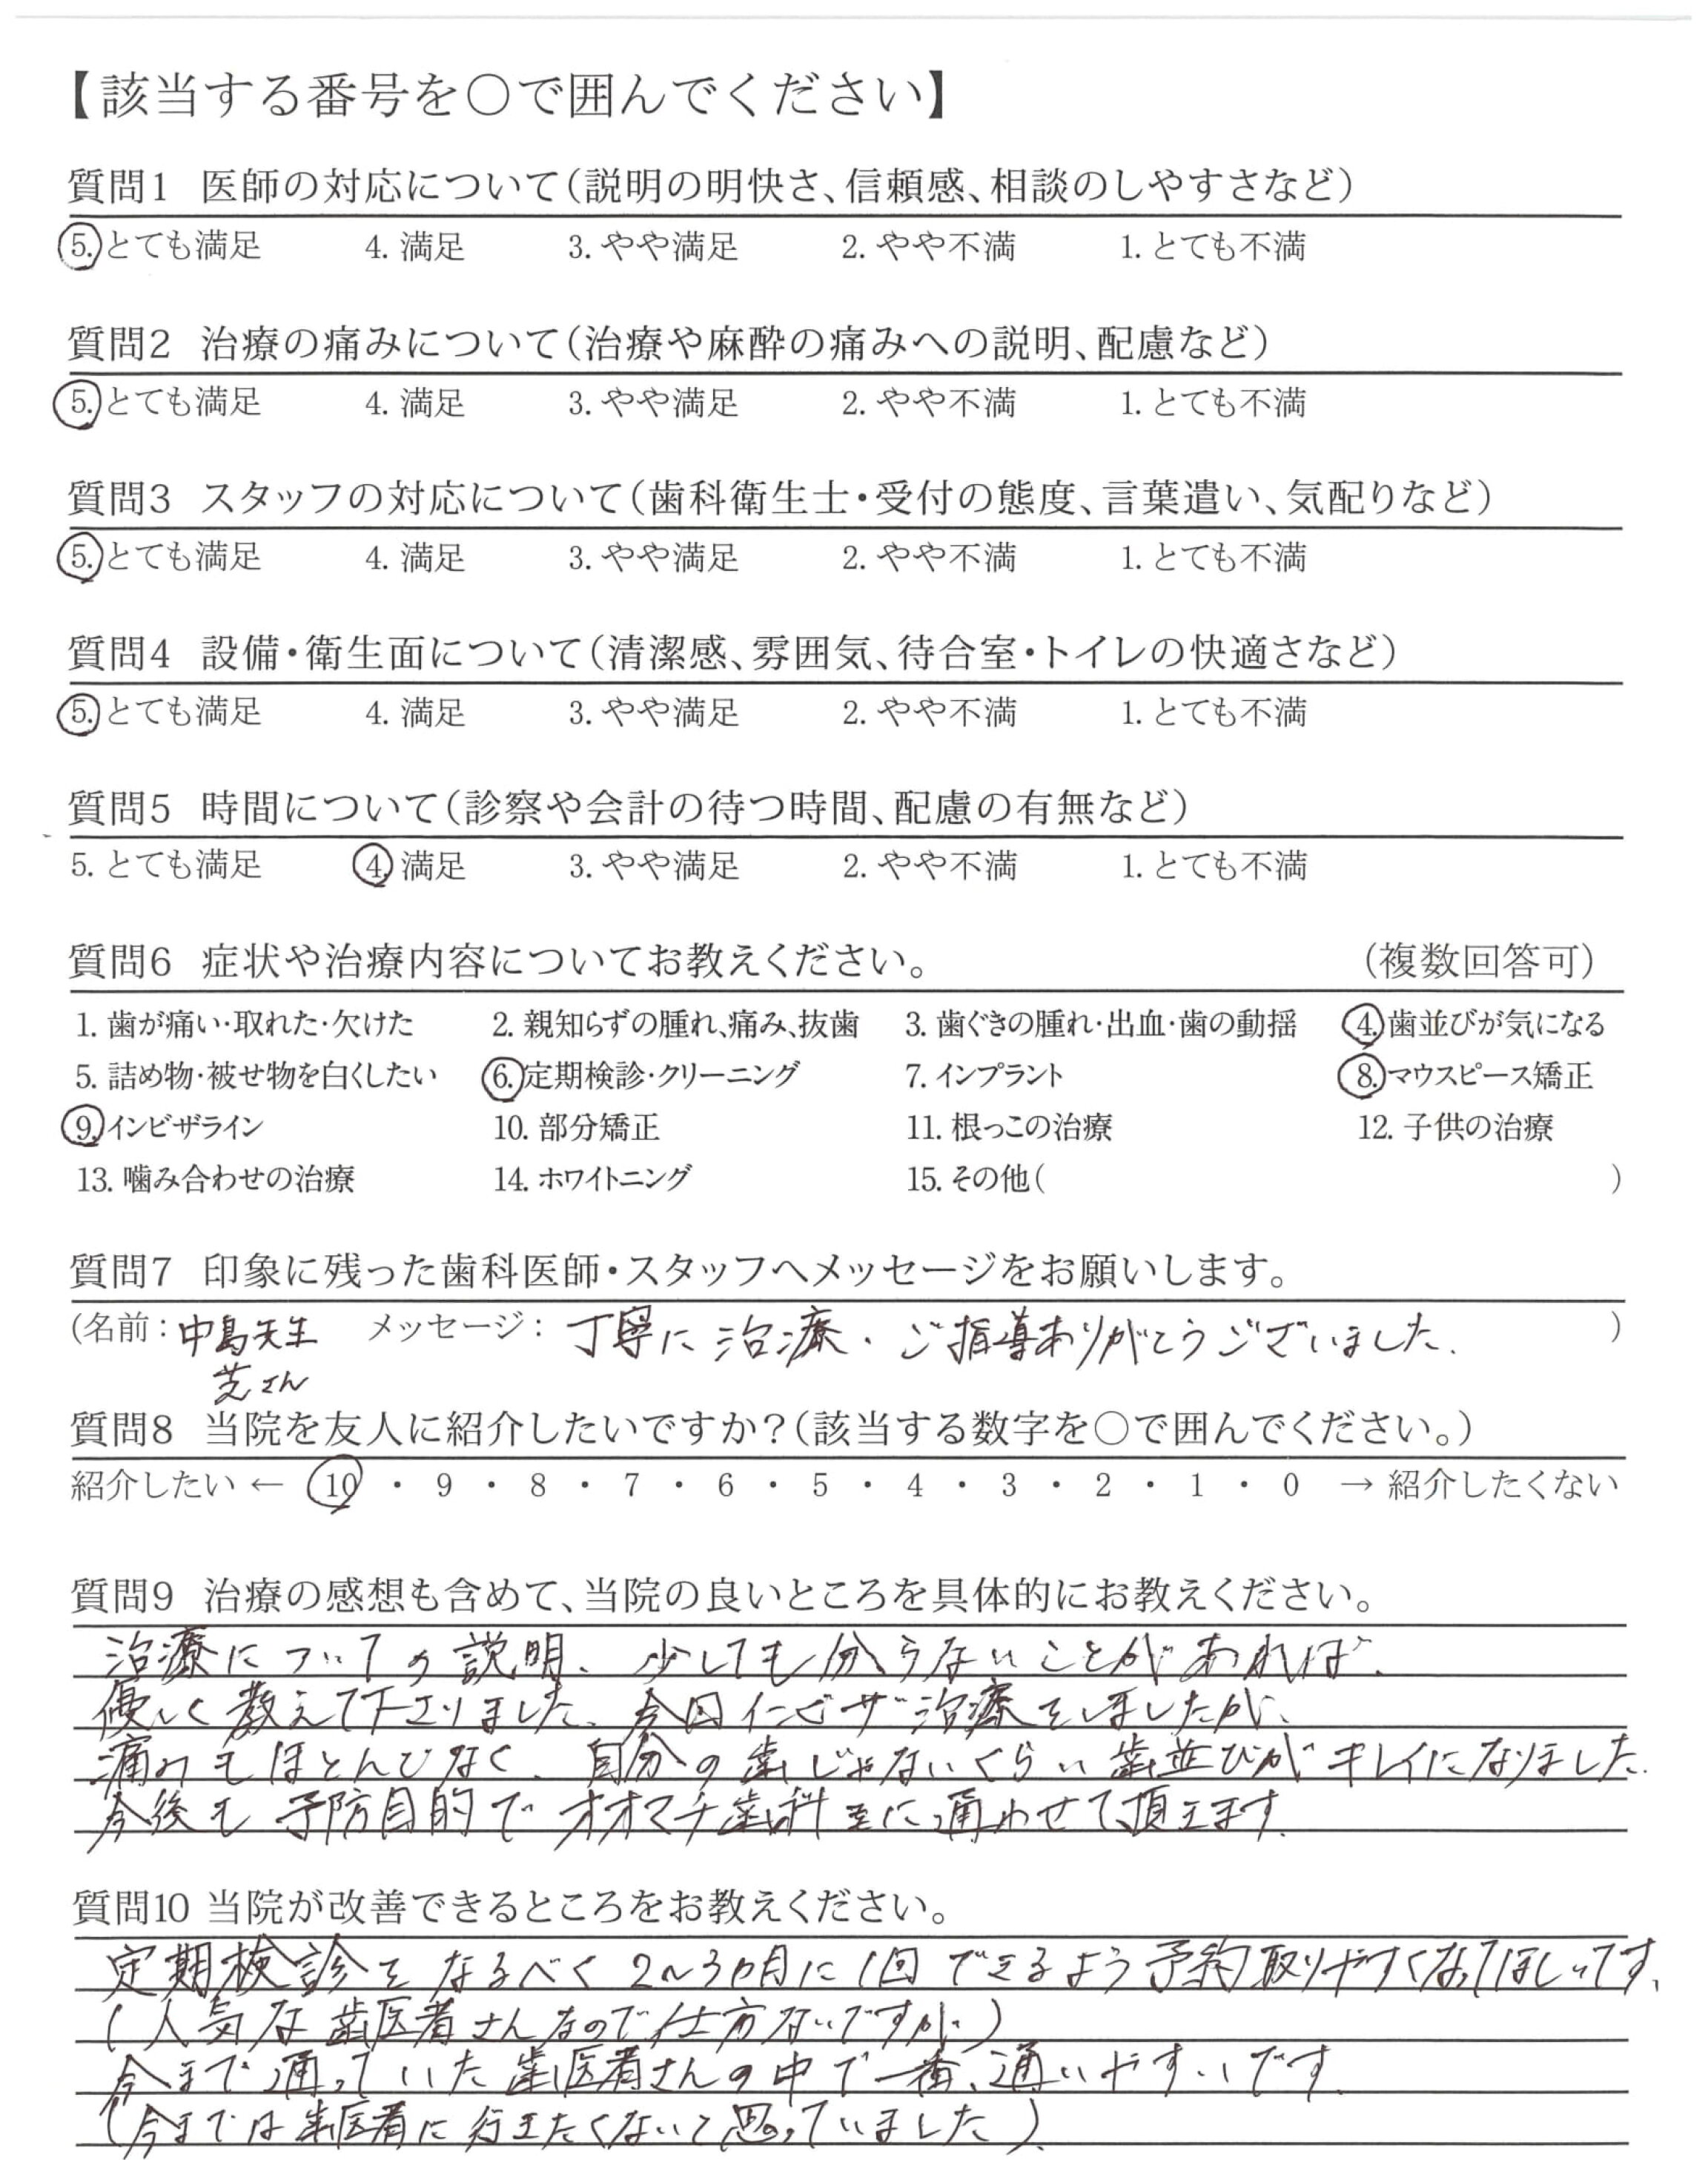 【該当する番号を〇で囲んでください】
質問1 医師の対応について(説明の明快さ、信頼感、相談のしやすさなど)
5. とても満足 4. 満足 3. やや満足 2. やや不満 1. とても不満
質問2 治療の痛みについて(治療や麻酔の痛みへの説明、配慮など)
5. とても満足 4. 満足 3. やや満足 2. やや不満 1. とても不満
質問3 スタッフの対応について(歯科衛生士・受付の態度、言葉遣い、気配りなど)
5. とても満足 4. 満足 3. やや満足 2. やや不満 1. とても不満
質問4 設備・衛生面について(清潔感、雰囲気、待合室・トイレの快適さなど)
5. とても満足 4. 満足 3. やや満足 2. やや不満 1. とても不満
質問5 時間について(診察や会計の待つ時間、配慮の有無など)
5. とても満足 4. 満足 3. やや満足 2. やや不満 1. とても不満
質問6 症状や治療内容についてお教えください。 (複数回答可)
1. 歯が痛い・取れた・欠けた 2. 親知らずの腫れ、痛み、抜歯 3. 歯ぐきの腫れ・出血・歯の動揺 4. 歯並びが気になる
5. 詰め物・被せ物を白くしたい 6. 定期検診・クリーニング 7. インプラント 8. マウスピース矯正
9. インビザライン 10. 部分矯正 11. 根っこの治療 12. 子供の治療
13. 噛み合わせの治療 14. ホワイトニング 15. その他( )
質問7 印象に残った歯科医師・スタッフへメッセージをお願いします。
(名前: 中島先生 メッセージ: 丁寧に治療・ご指導ありがとうございました. )
芝さん
質問8 当院を友人に紹介したいですか?(該当する数字を〇で囲んでください。)
紹介したい ← 10 ・ 9 ・ 8 ・ 7 ・ 6 ・ 5 ・ 4 ・ 3 ・ 2 ・ 1 ・ 0 → 紹介したくない
質問9 治療の感想も含めて、当院の良いところを具体的にお教えください。
治療についての説明、少しでも分らないことがあれば、
優しく教えて下さりました。今回インビザ治療をしましたが、
痛みもほとんどなく、自分の歯じゃないくらい歯並びがキレイになりました.
今後も予防目的でオオマチ歯科室に通わせて頂きます.
質問10 当院が改善できるところをお教えください。
定期検診をなるべく2〜3カ月に1回できるよう予約取りやすくなってほしいです、
(人気な歯医者さんなので仕方ないですが…)
今まで通っていた歯医者さんの中で一番、通いやすいです.
(今までは歯医者に行きたくないと思っていました).